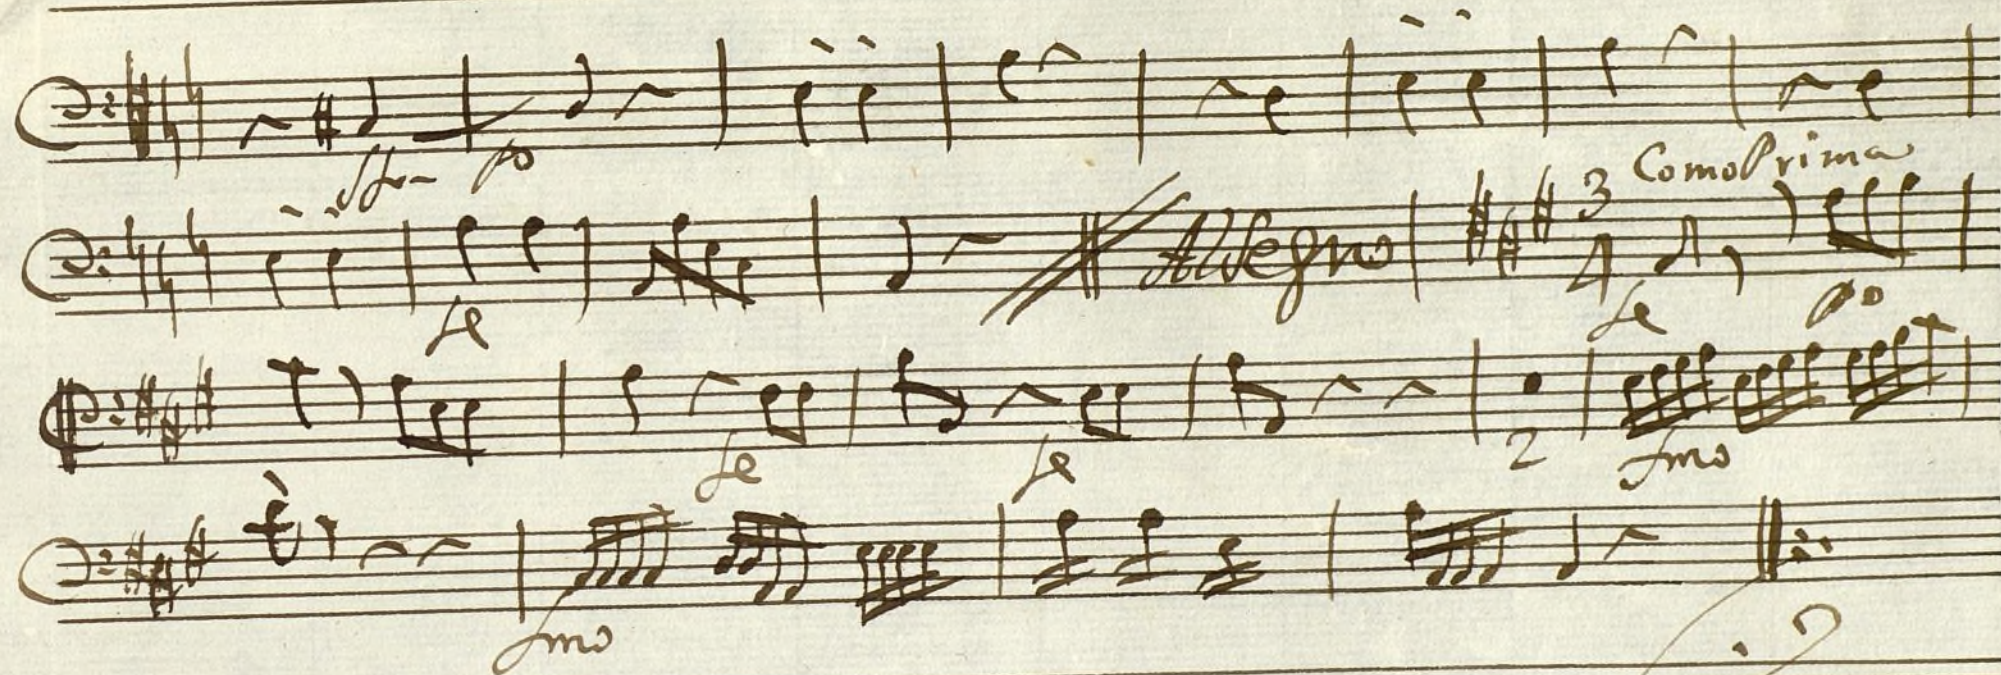 sfr po
Como Prima
Al Segno 3 4
fe fe po
fe fe 2 fmo
fmo